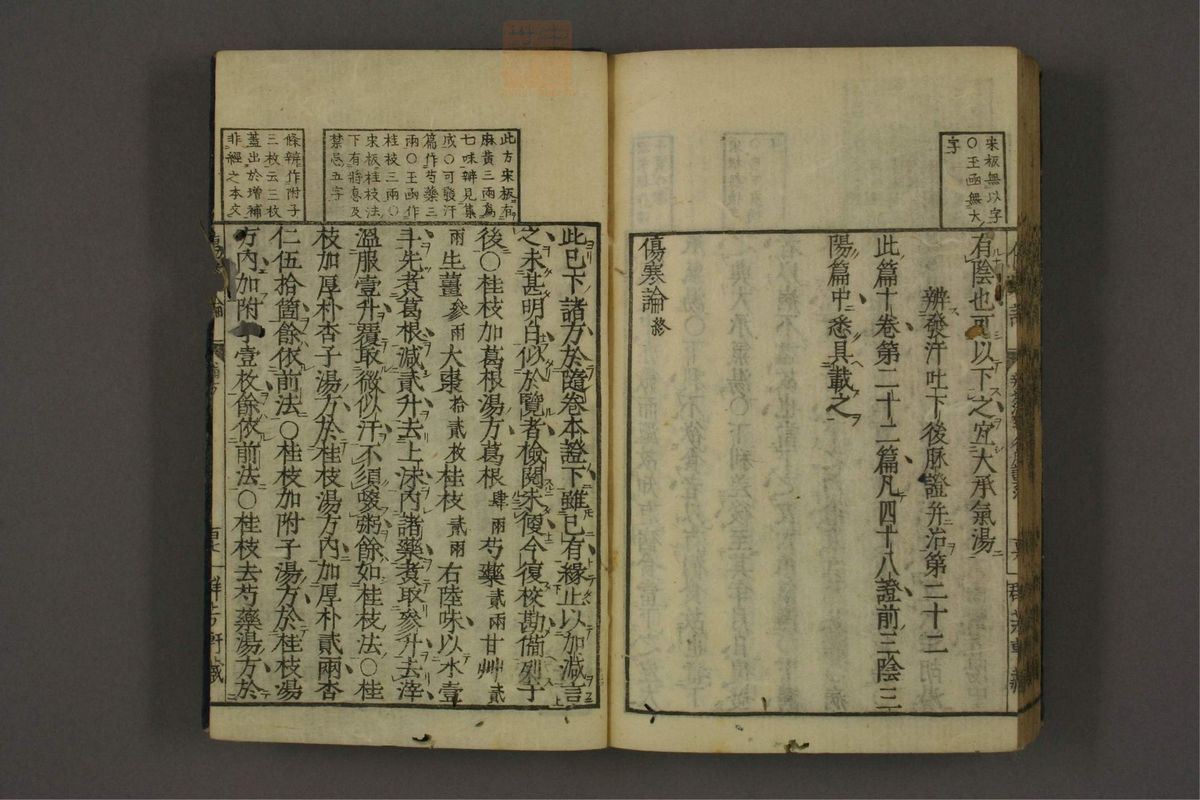 宋板無以字
○玉函無大
字
有陰也可以下之宜大承氣湯
辨發汗吐下後脉證幷治第二十二
此篇十卷第二十二篇凡四十八證前三陰三
陽篇中悉具載之
傷寒論終
此方宋板有
麻黃三兩爲
七味辨見集
成○可發汗
篇作芍藥三
兩○玉函作
桂枝三兩○
宋板桂枝法
下有將息及
禁忌五字
條辨作附子
三枚云三枚
蓋出於增補
非經之本文
此已下諸方於隨卷本證下雖已有緣止以加減言
之未甚明白似於覽者檢閱未便今復校勘備列于
後○桂枝加葛根湯方葛根肆兩芍藥貳兩甘艸貳
兩生薑參兩大棗拾貳枚桂枝貳兩右陸味以水壹
斗先煮葛根減貳升去上沫内諸藥煮取參升去滓
溫服壹升覆取微似汗不須啜粥餘如桂枝法○桂
枝加厚朴杏子湯方於桂枝湯方內加厚朴貳兩杏
仁伍拾箇餘依前法○桂枝加附子湯方於桂枝湯
方內加附子壹枚餘依前法○桂枝去芍藥湯方於